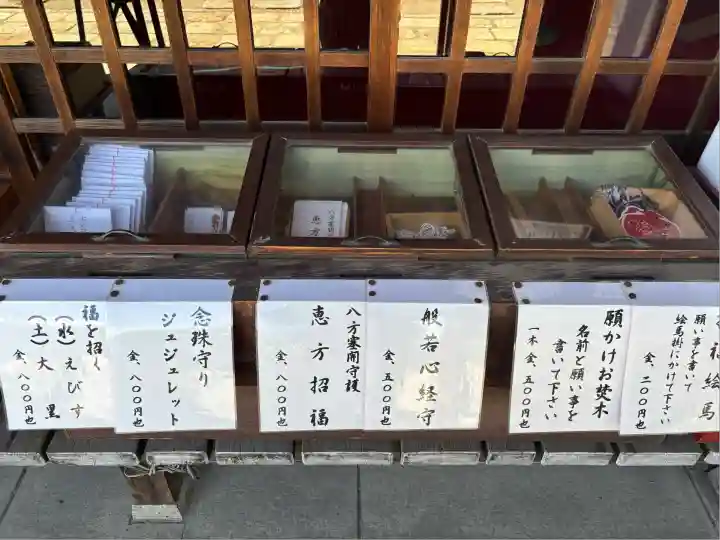 福を招く
(水)えびす
(土)大黒
金、八〇〇円也
念珠守り
ジュジュレット
金、八〇〇円也
八方塞開守護
恵方招福
金、八〇〇円也
般若心経守
金、五〇〇円也
願かけお焚木
名前と願い事を
書いて下さい
一本金、五〇〇円也
福絵馬
願い事を書いて
絵馬掛にかけて下さい
金、二〇〇円也
恵方